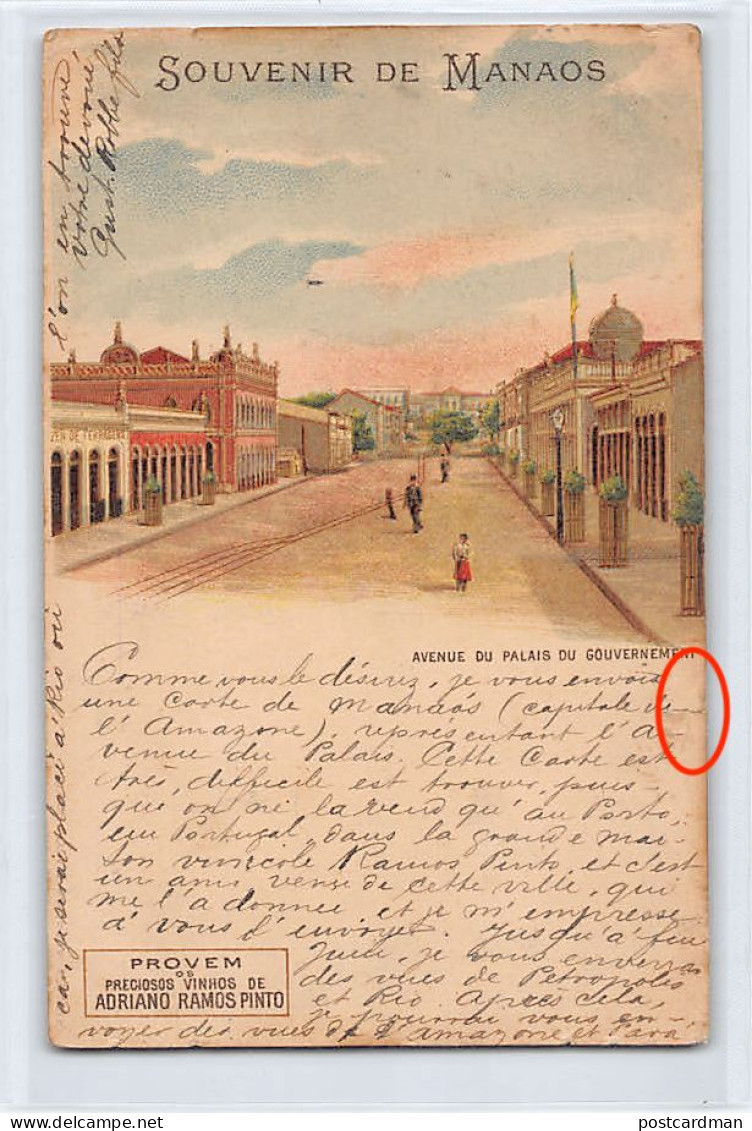 SOUVENIR DE MANAOS
ZEM DE FERRAGENS
AVENUE DU PALAIS DU GOUVERNEMENT
Comme vous le désirez, je vous envoie
une carte de Manaós (capitale de
l'Amazone), représentant l'A-
venue du Palais. Cette Carte est
très, difficile est trouver, puis-
que on ne la vend qu'au Porto,
en Portugal, dans la grande mai-
son vinicole Ramos Pinto, et c'est
un ami venu de cette ville, qui
me l'a donnée, et je m'empresse
à vous l'envoyer. Jusqu'à fin
Juin, je vous enverrai
des vues de Petropolis
et Rio. Après cela,
je pourrai vous en-
voyer des vues de l'Amazone et Pará
PROVEM
OS
PRECIOSOS VINHOS DE
ADRIANO RAMOS PINTO
car, je serai placé à Rio ou
l'on en trouve
Votre dévoué,
Gust. Robbe fils
postcardman